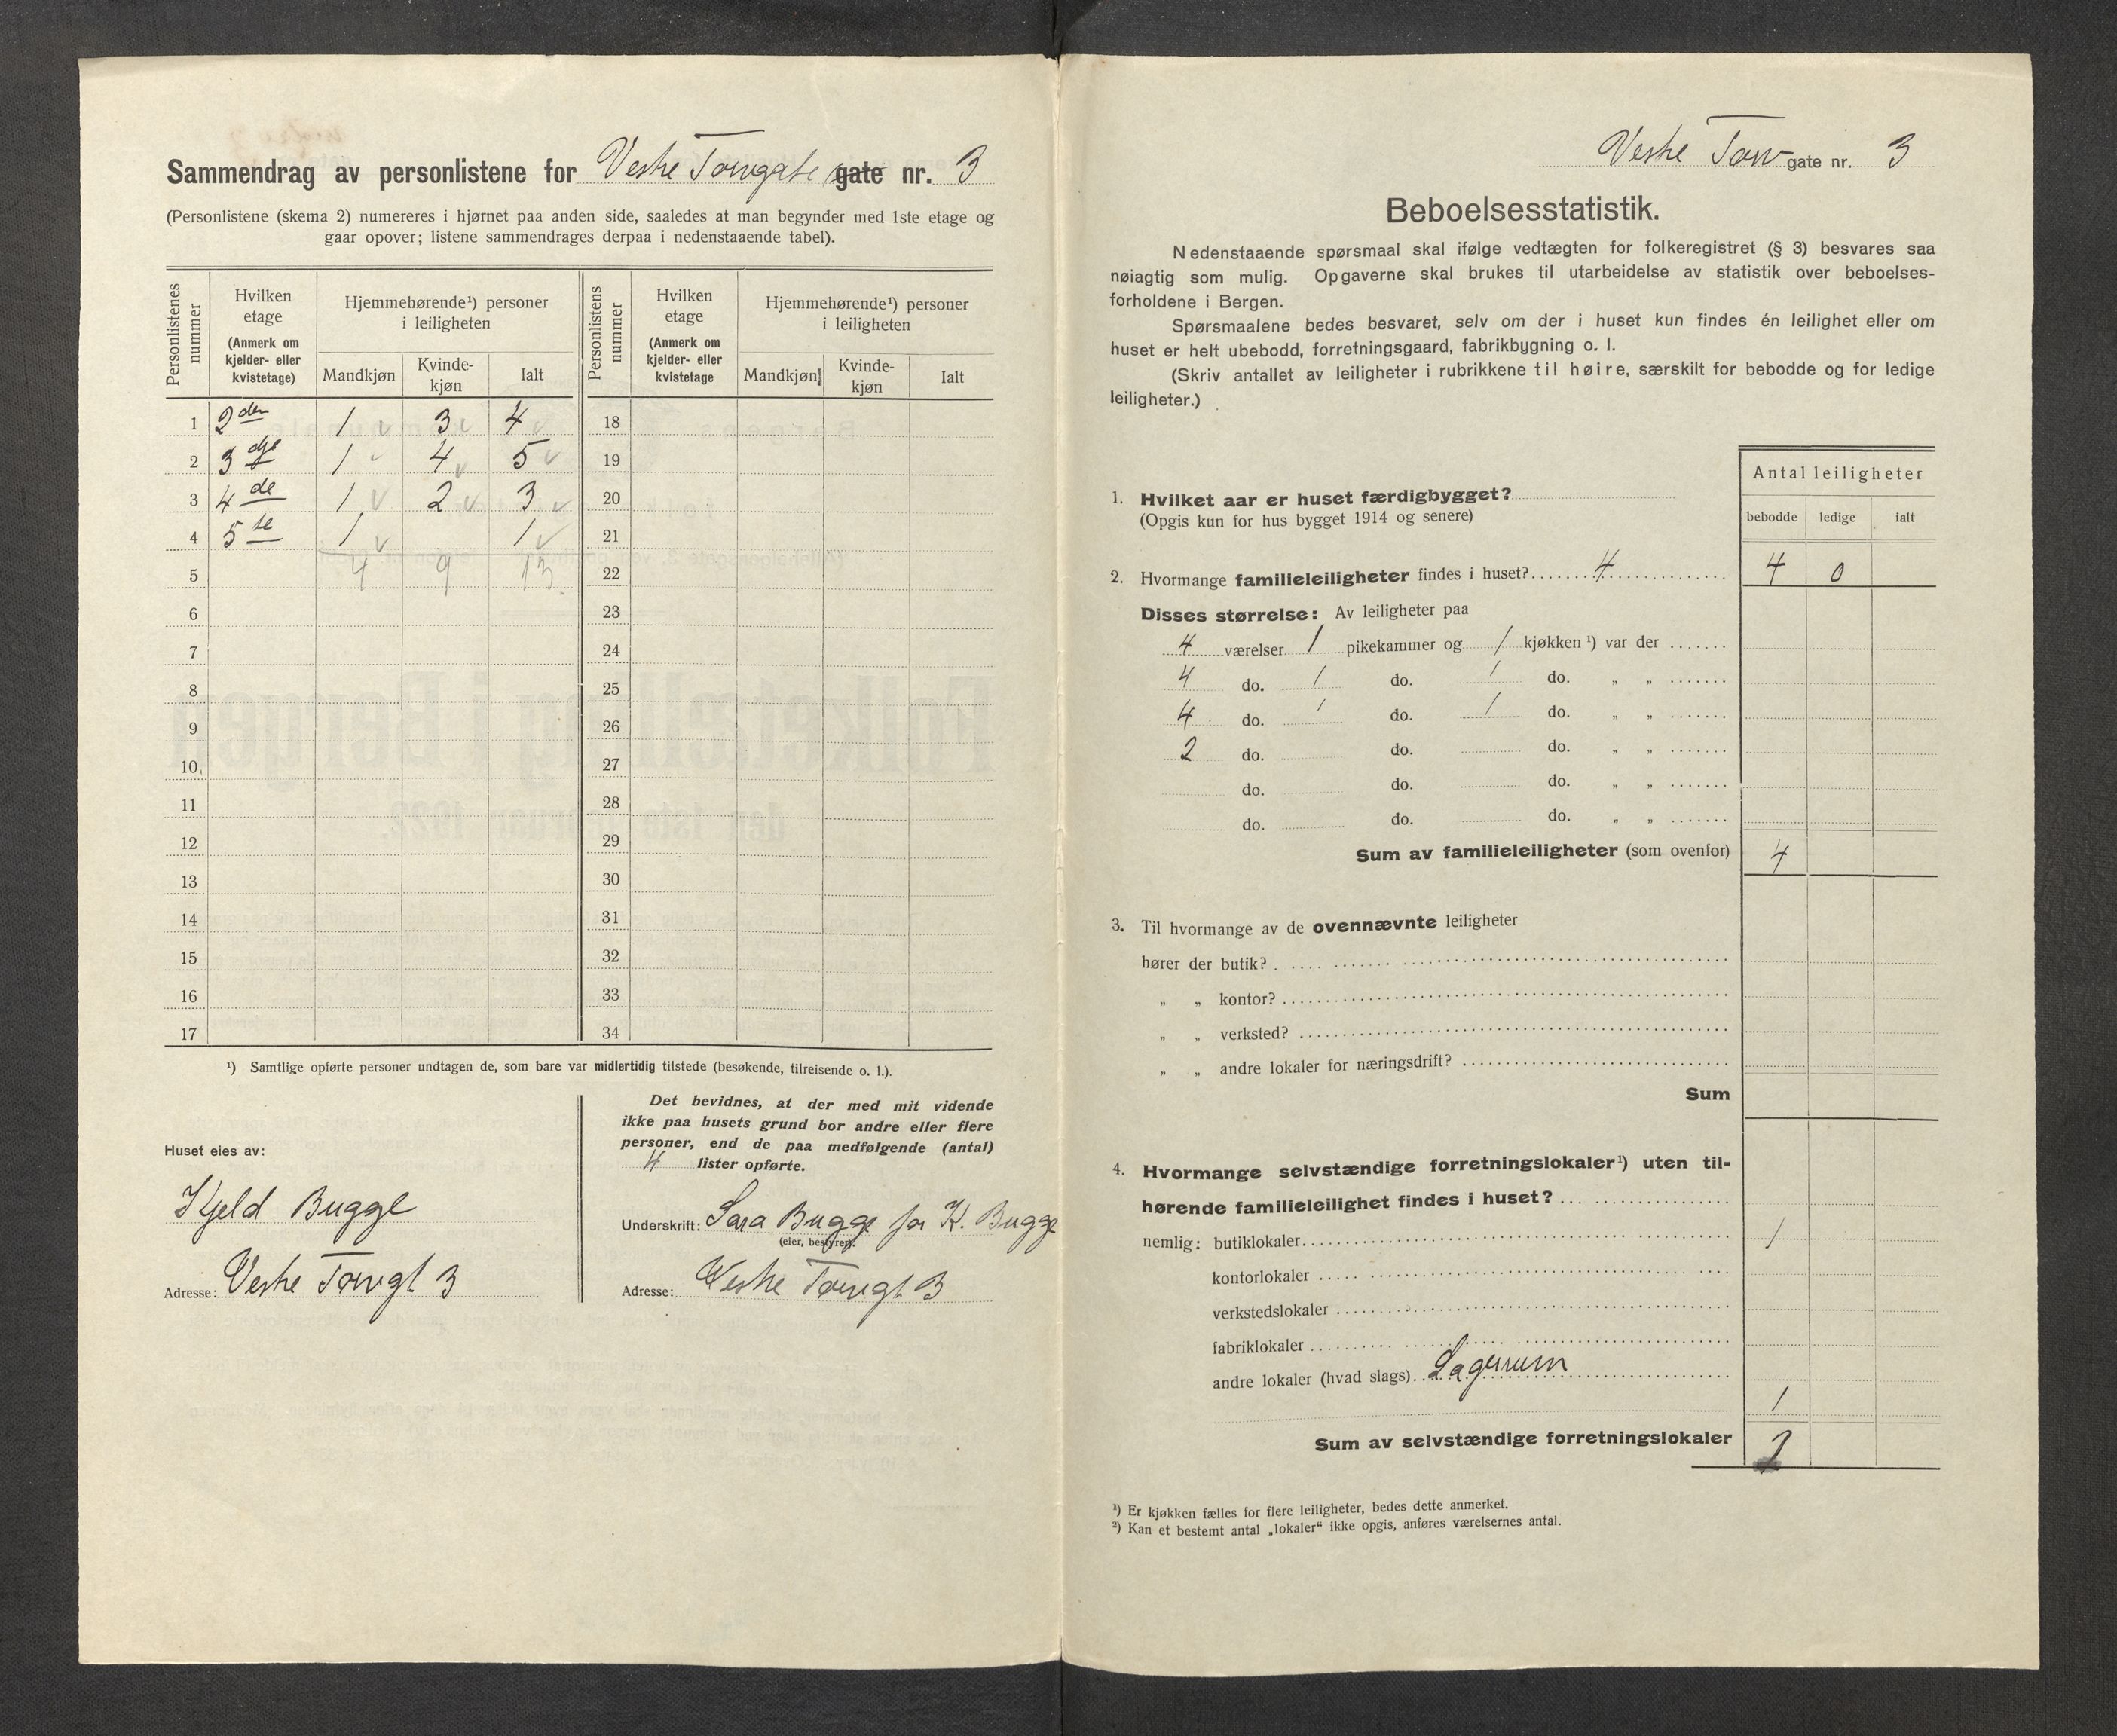 Sammendrag av personlistene for Vestre Torvgate gate nr. 3
(Personlistene (skema 2) numereres i hjørnet paa anden side, saaledes at man begynder med 1ste etage og
gaar opover; listene sammendrages derpaa i nedenstaaende tabel).
Personlistenes nummer | Hvilken etage (Anmerk om kjelder- eller kvistetage) | Hjemmehørende¹) personer i leiligheten | Personlistens nummer | Hvilken etage (Anmerk om kjelder- eller kvistetage | Hjemmehørende¹) personer i leiligheten
Mandkjøn | Kvinde-kjøn | Ialt | Mandkjøn | Kvinde-kjøn | Ialt
1 2den 1 3 4 18
2 3dje 1 4 5 19
3 4de 1 2 3 20
4 5te 1 1 21
5 4 9 13 22
6 23
7 24
8 25
9 26
10 27
11 28
12 29
13 30
14 31
15 32
16 33
17 34
¹) Samtlige opførte personer undtagen de, som bare var midlertidig tilstede (besøkende, tilreisende o. l.).
Huset eies av:
Kjeld Bugge
Adresse: Vestre Torvgt 3
Det bevidnes, at der med mit vidende
ikke paa husets grund bor andre eller flere
personer, end de paa medfølgende (antal)
4 lister opførte.
Underskrift: Sara Bugge for K. Bugge
(eier, bestyrer).
Adresse: Vestre Torvgt 3
Vestre Torv gate nr. 3
Beboelsesstatistik.
Nedenstaaende spørsmaal skal ifølge vedtægten for folkeregistret (§ 3) besvares saa
nøiagtig som mulig. Opgaverne skal brukes til utarbeidelse av statistik over beboelses-
forholdene i Bergen.
Spørsmaalene bedes besvaret, selv om der i huset kun findes én leilighet eller om
huset er helt ubebodd, forretningsgaard, fabrikbygning o. l.
(Skriv antallet av leiligheter i rubrikkene til høire, særskilt for bebodde og for ledige
leiligheter.)
Antal leiligheter
bebodde ledige ialt
1. Hvilket aar er huset færdigbygget?
(Opgis kun for hus bygget 1914 og senere)
2. Hvormange familieleiligheter findes i huset? 4 4 0
Disses størrelse: Av leiligheter paa
4 værelser 1 pikekammer og 1 kjøkken ¹) var der
4 do. 1 do. 1 do. „ „
4 do. 1 do. 1 do. „ „
2 do. do. do. „ „
do. do. do. „ „
do. do. do. „ „
Sum av familieleiligheter (som ovenfor) 4
3. Til hvormange av de ovennævnte leiligheter
hører der butik?
„ „ kontor?
„ „ verksted?
„ „ andre lokaler for næringsdrift?
Sum
4. Hvormange selvstændige forretningslokaler¹) uten til-
hørende familieleilighet findes i huset?
nemlig: butiklokaler 1
kontorlokaler
verkstedslokaler
fabriklokaler
andre lokaler (hvad slags) Lagerrum
1
Sum av selvstændige forretningslokaler 2
¹) Er kjøkken fælles for flere leiligheter, bedes dette anmerket.
²) Kan et bestemt antal „lokaler“ ikke opgis, anføres værelsernes antal.